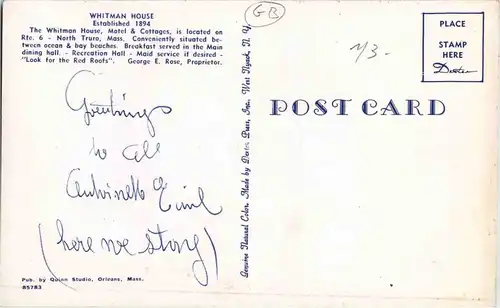 WHITMAN HOUSE
Established 1894
The Whitman House, Motel & Cottages, is located on
Rte. 6 - North Truro, Mass. Conveniently situated be-
tween ocean & bay beaches. Breakfast served in the Main
dining hall. - Recreation Hall - Maid service if desired -
"Look for the Red Roofs". George E. Rose, Proprietor.
Greetings
to all
(here we stay)
Pub. by Quinn Studio, Orleans, Mass.
85783
Genuine Natural Color. Made by Dexter Press, Inc. West Nyack, N. Y.
GB
PLACE
STAMP
HERE
Dexter
POST CARD